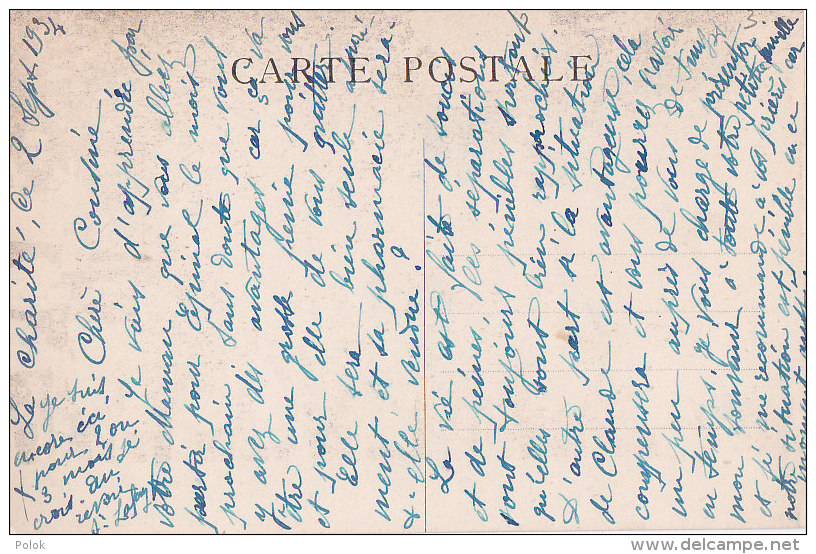 CARTE POSTALE
La Charité, le 2 Sept. 1934
Chère Cousine
Je viens d'apprendre par
votre Maman que vous allez
partir pour Epinal le mois
prochain. Sans doute que vous
y avez des avantages car ce va
être une grosse peine pour vous
et pour elle de vous quitter.
Elle sera bien seule
ment et sa pharmacie sera-
t-elle vendue ?
La vie est faite de soucis
et de peines, les séparations
sont toujours pénibles surtout
qu'elles sont bien rapprochées.
D'autre part si la situation
de Claude est avantageuse, cela
compensera et vous pourrez l'avoir
un peu auprès de vous de temps
en temps. Je vous charge de présenter
mon bonjour à toute votre petite famille
et je me recommande à vos prières car
notre situation est pénible en ce
moment
Je suis
encore ici,
pour 2 ou
3 mois je
crois. Au
revoir
Polok
delcampe.net